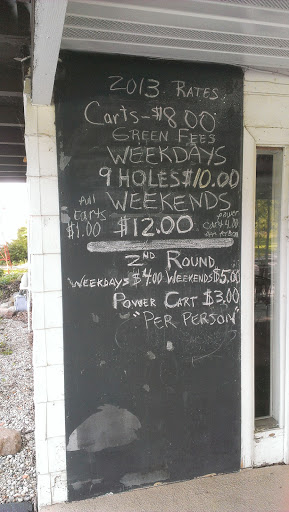 2013 RATES
Carts-$8.00
GREEN FEES
WEEKDAYS
9 HOLES $10.00
WEEKENDS
Pull
carts
$1.00
$12.00
power
cart 4.00
per person
2ND ROUND
WEEKDAYS $4.00 WEEKENDS $5.00
POWER CART $3.00
"PER PERSON"